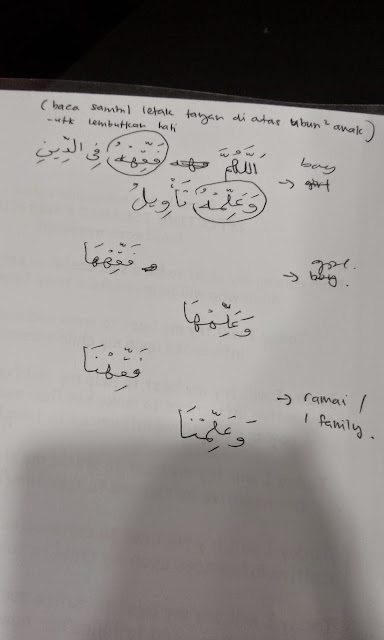 (baca sambil letak tangan di atas ubun² anak)
- utk lembutkan hati
اَللَّهُمَّ فَقِّهْهُ فِي الدِّينِ → boy
وَعَلِّمْهُ تَأْوِيلُ
فَقِّهْهَا → girl.
وَعَلِّمْهَا
فَقِّهْنَا
وَعَلِّمْنَا → ramai / 1 family.